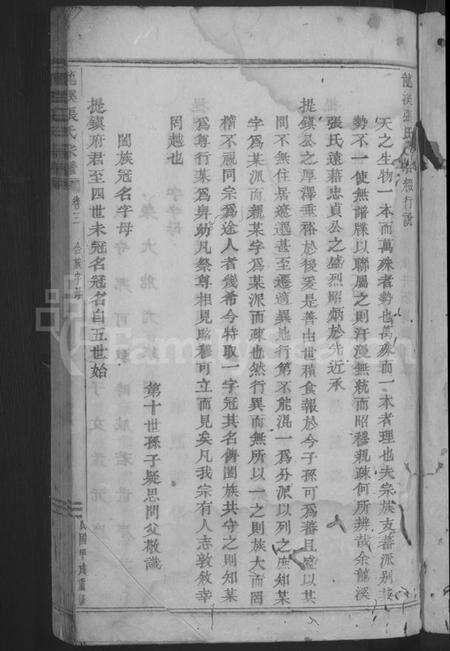 龍溪張氏
行說
天之生物一本而萬殊者勢也萬殊而一本者理也夫宗族支蕃派別
勢不一使無譜牒以聯屬之則汗漫無統而昭穆親疎何所辨哉余龍溪
張氏遠藉忠貞公之盛烈昭炳於先近承
提鎮公之厚澤垂裕於後爰是善由世積食報於今子孫可爲蕃且盛以其
間不無住居遼遠甚至遷適異地行第不能混一爲分派以列之在知某
字爲某派而親某字爲某派而疎也然行異而無所以一之則族大而圖
稽不視同宗爲途人者幾希今特取一字冠其名傳闔族共守之則知某
爲尊行某爲卑幼凡祭尊相見昭穆可立而見矣凡我宗有人志敦敘幸
罔越也
第十世孫子疑思問父敬識
闔族冠名字母
提鎮府君至四世未冠名冠名自五世始
龍溪張氏宗譜
卷三
民國甲戌重
FamilySearch